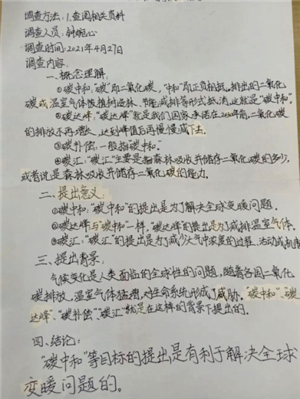 调查方法：1.查阅相关资料
调查人员：钟晓心
调查时间：2021年4月27日
调查内容：
一、概念理解：
①碳中和，"碳"即二氧化碳，"中和"即正负相抵。排出的二氧化
碳或温室气体被植树造林、节能减排等形式抵消，这就是"碳中和"。
②碳达峰，"碳达峰"就是我们国家承诺在2030年前，二氧化碳
的排放不再增长，达到峰值后再慢慢减下去。
③碳补偿，一般指碳中和。
④碳汇，"碳汇"主要是指森林吸收并储存二氧化碳的多少，
或者说是森林吸收并储存二氧化碳的能力。
二、提出意义：
①碳中和，"碳中和"的提出是为了解决全球变暖问题，
②碳达峰与"碳中和"一样，"碳达峰"的提出是为了减排温室气体。
④碳汇，"碳汇"的提出是为了减少大气中炭的过程、活动或机制
三、提出背景：
气候变化是人类面临的全球性的问题，随着各国二氧化
碳排放，温室气体猛增，对生命系统形成了威胁，"碳中和"、"碳
达峰"、"碳补偿"、"碳汇"就是在这样的背景下提出的。
四、结论：
"碳中和"等目标的提出是有利于解决全球
变暖问题的。